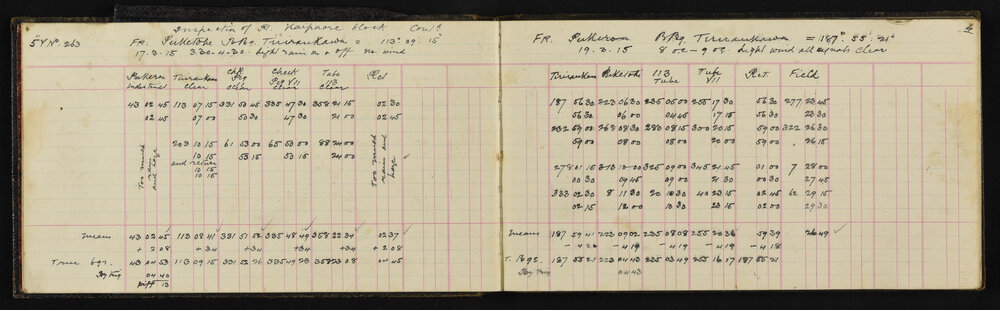 Inspection of Pt. Kaipaare block Cond
5"Y No. 263
FR. Puketohe Brg. Tiuraukawa = 113° 09' 15"
17.3.15 3.30-4.30 light rain on & off no wind
Pukeroa Indistinct Tiuraukawa clear Chk Peg clear Check Peg VII clear Tube 113 clear Ret
43 02 45 113 07 15 331 50 45 335 47 30 358 21 15 02 30
02 45 07 00 50 30 47 30 21 00 02 45
203 10 15 61 53 00 65 50 00 88 24 00
10 15 53 15 50 15 24 00
end return
10 15
10 15
Too much rain and haze
Too much rain and haze
Means 43 02 45 113 08 41 331 51 52 335 48 49 358 22 34 02 37
+ 2 08 +34 +34 +34 +34 + 2 08
True brgs. 43 04 53 113 09 15 331 52 26 335 49 23 358 23 08 04 45
By Trig 04 40
Diff 13
4
FR. Pukeroa Brg. Tiuraukawa = 187° 55' 21"
19.3.15 8 oc - 9 oc light wind all signals clear
Tiuraukawa Puketohe 113 Tube Tube VII Ret. Field
187 56 30 223 06 30 235 05 00 255 17 30 56 30 277 23 45
56 30 06 00 04 45 17 15 56 30 23 30
232 59 00 268 08 30 280 08 15 300 20 15 59 00 322 26 30
59 00 08 00 08 00 20 15 59 00 26 15
278 01 15 313 10 00 325 09 00 345 21 45 01 00 7 28 00
00 30 09 45 09 00 21 30 00 30 27 45
333 02 30 8 11 30 20 10 30 40 23 15 02 45 62 29 15
02 15 12 00 10 30 23 15 02 00 29 30
Means 187 59 41 223 09 02 235 08 08 255 20 36 59 39 26 49
- 4 20 - 4 19 - 4 19 - 4 19 - 4 18
T. Brgs. 187 55 21 223 04 43 235 03 49 255 16 17 187 55 21
By Trig 04 43